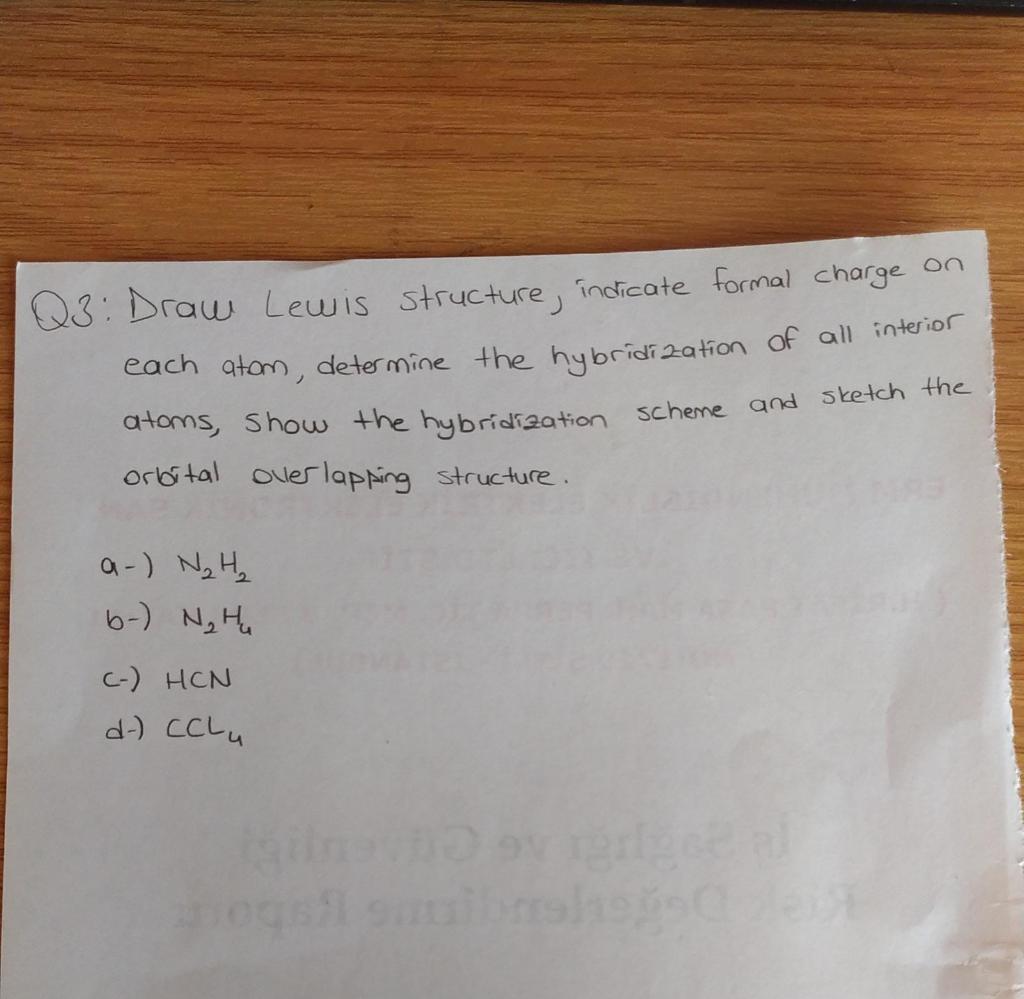 Q3: Draw Lewis structure, indicate formal charge on
each atom, determine the hybridization of all interior
atoms, show the hybridization scheme and sketch the
orbital overlapping structure.
a-) N₂H₂
b-) N₂H₄
c-) HCN
d-) CCL₄
İş Sağlığı ve Güvenliği
Risk Değerlendirme Raporu